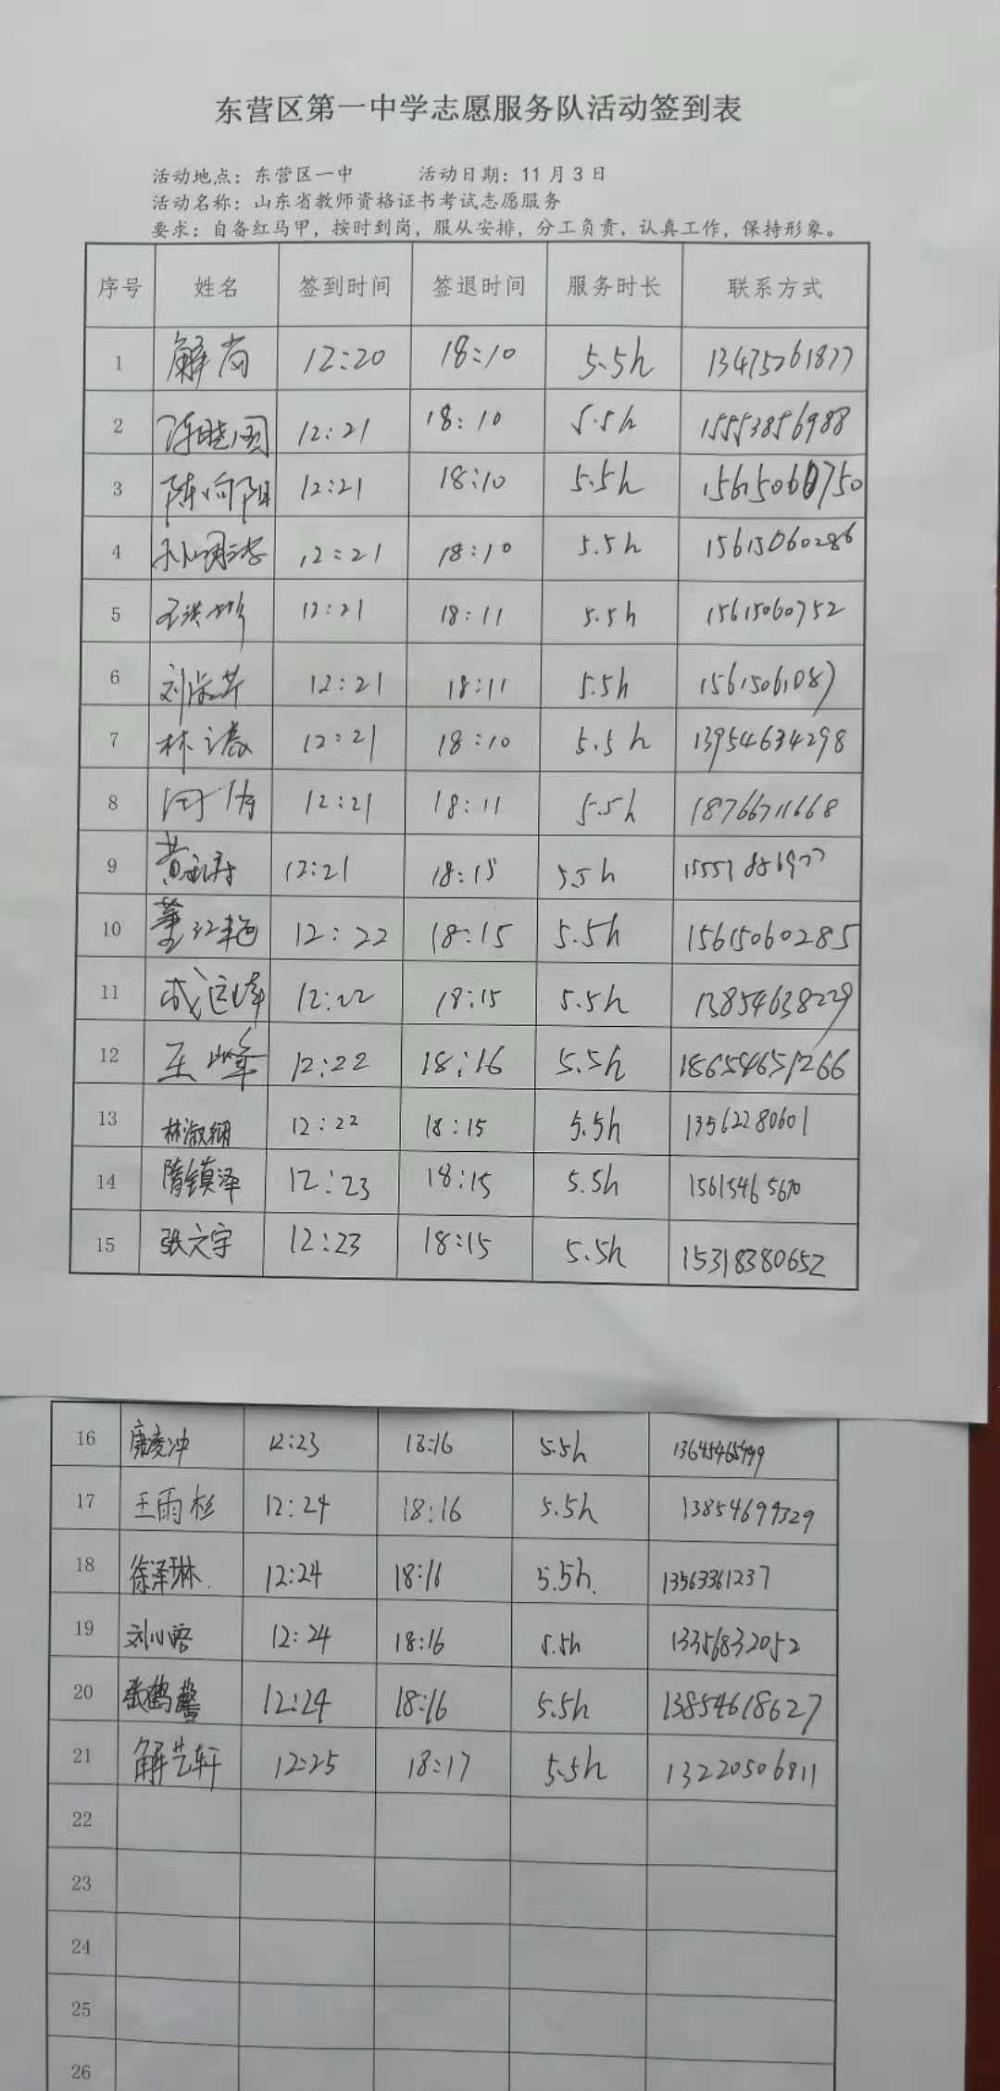 东营区第一中学志愿服务队活动签到表
活动地点：东营区一中 活动日期：11月3日
活动名称：山东省教师资格证书考试志愿服务
要求：自备红马甲，按时到岗，服从安排，分工负责，认真工作，保持形象。
序号 姓名 签到时间 签退时间 服务时长 联系方式
1 解尚 12:20 18:10 5.5h 13475261877
2 12:21 18:10 5.5h 15553856988
3 陈向阳 12:21 18:10 5.5h 15615060750
4 12:21 18:10 5.5h 15615060286
5 12:21 18:11 5.5h 15615060752
6 12:21 18:11 5.5h 15615061087
7 12:21 18:10 5.5h 13954634298
8 12:21 18:11 5.5h 18766711668
9 12:21 18:15 5.5h
10 董红艳 12:22 18:15 5.5h 15615060285
11 成运峰 12:22 18:15 5.5h 13854638229
12 王峰 12:22 18:16 5.5h 18654651266
13 林淑娴 12:22 18:15 5.5h 13562280601
14 隋镇泽 12:23 18:15 5.5h 15615465670
15 张文宇 12:23 18:15 5.5h 15318380652
16 唐凌冲 12:23 18:16 5.5h
17 王雨杉 12:24 18:16 5.5h 13854699329
18 徐泽琳 12:24 18:16 5.5h. 13563361237
19 12:24 18:16 5.5h 13356832052
20 张鹤馨 12:24 18:16 5.5h 13854618627
21 解艺轩 12:25 18:17 5.5h 13220506811
22
23
24
25
26